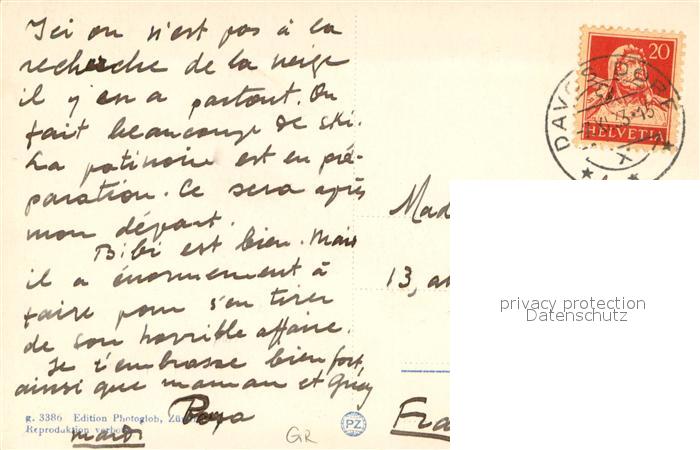 Ici on n'est pas à la
recherche de la neige
il y en a partout. On
fait beaucoup de ski.
La patinoire est en pré-
paration. Ce sera après
mon départ.
Bibi est bien. Mais
il a énormément à
faire pour s'en tirer
de son horrible affaire.
Je t'embrasse bien fort,
ainsi que maman et
Papa
mardi
g. 3386 Edition Photoglob, Zü
Reproduktion verbo
GR
PZ
20
HELVETIA
DAVOS DORF
Mad
13, a
Fra
privacy protection
Datenschutz